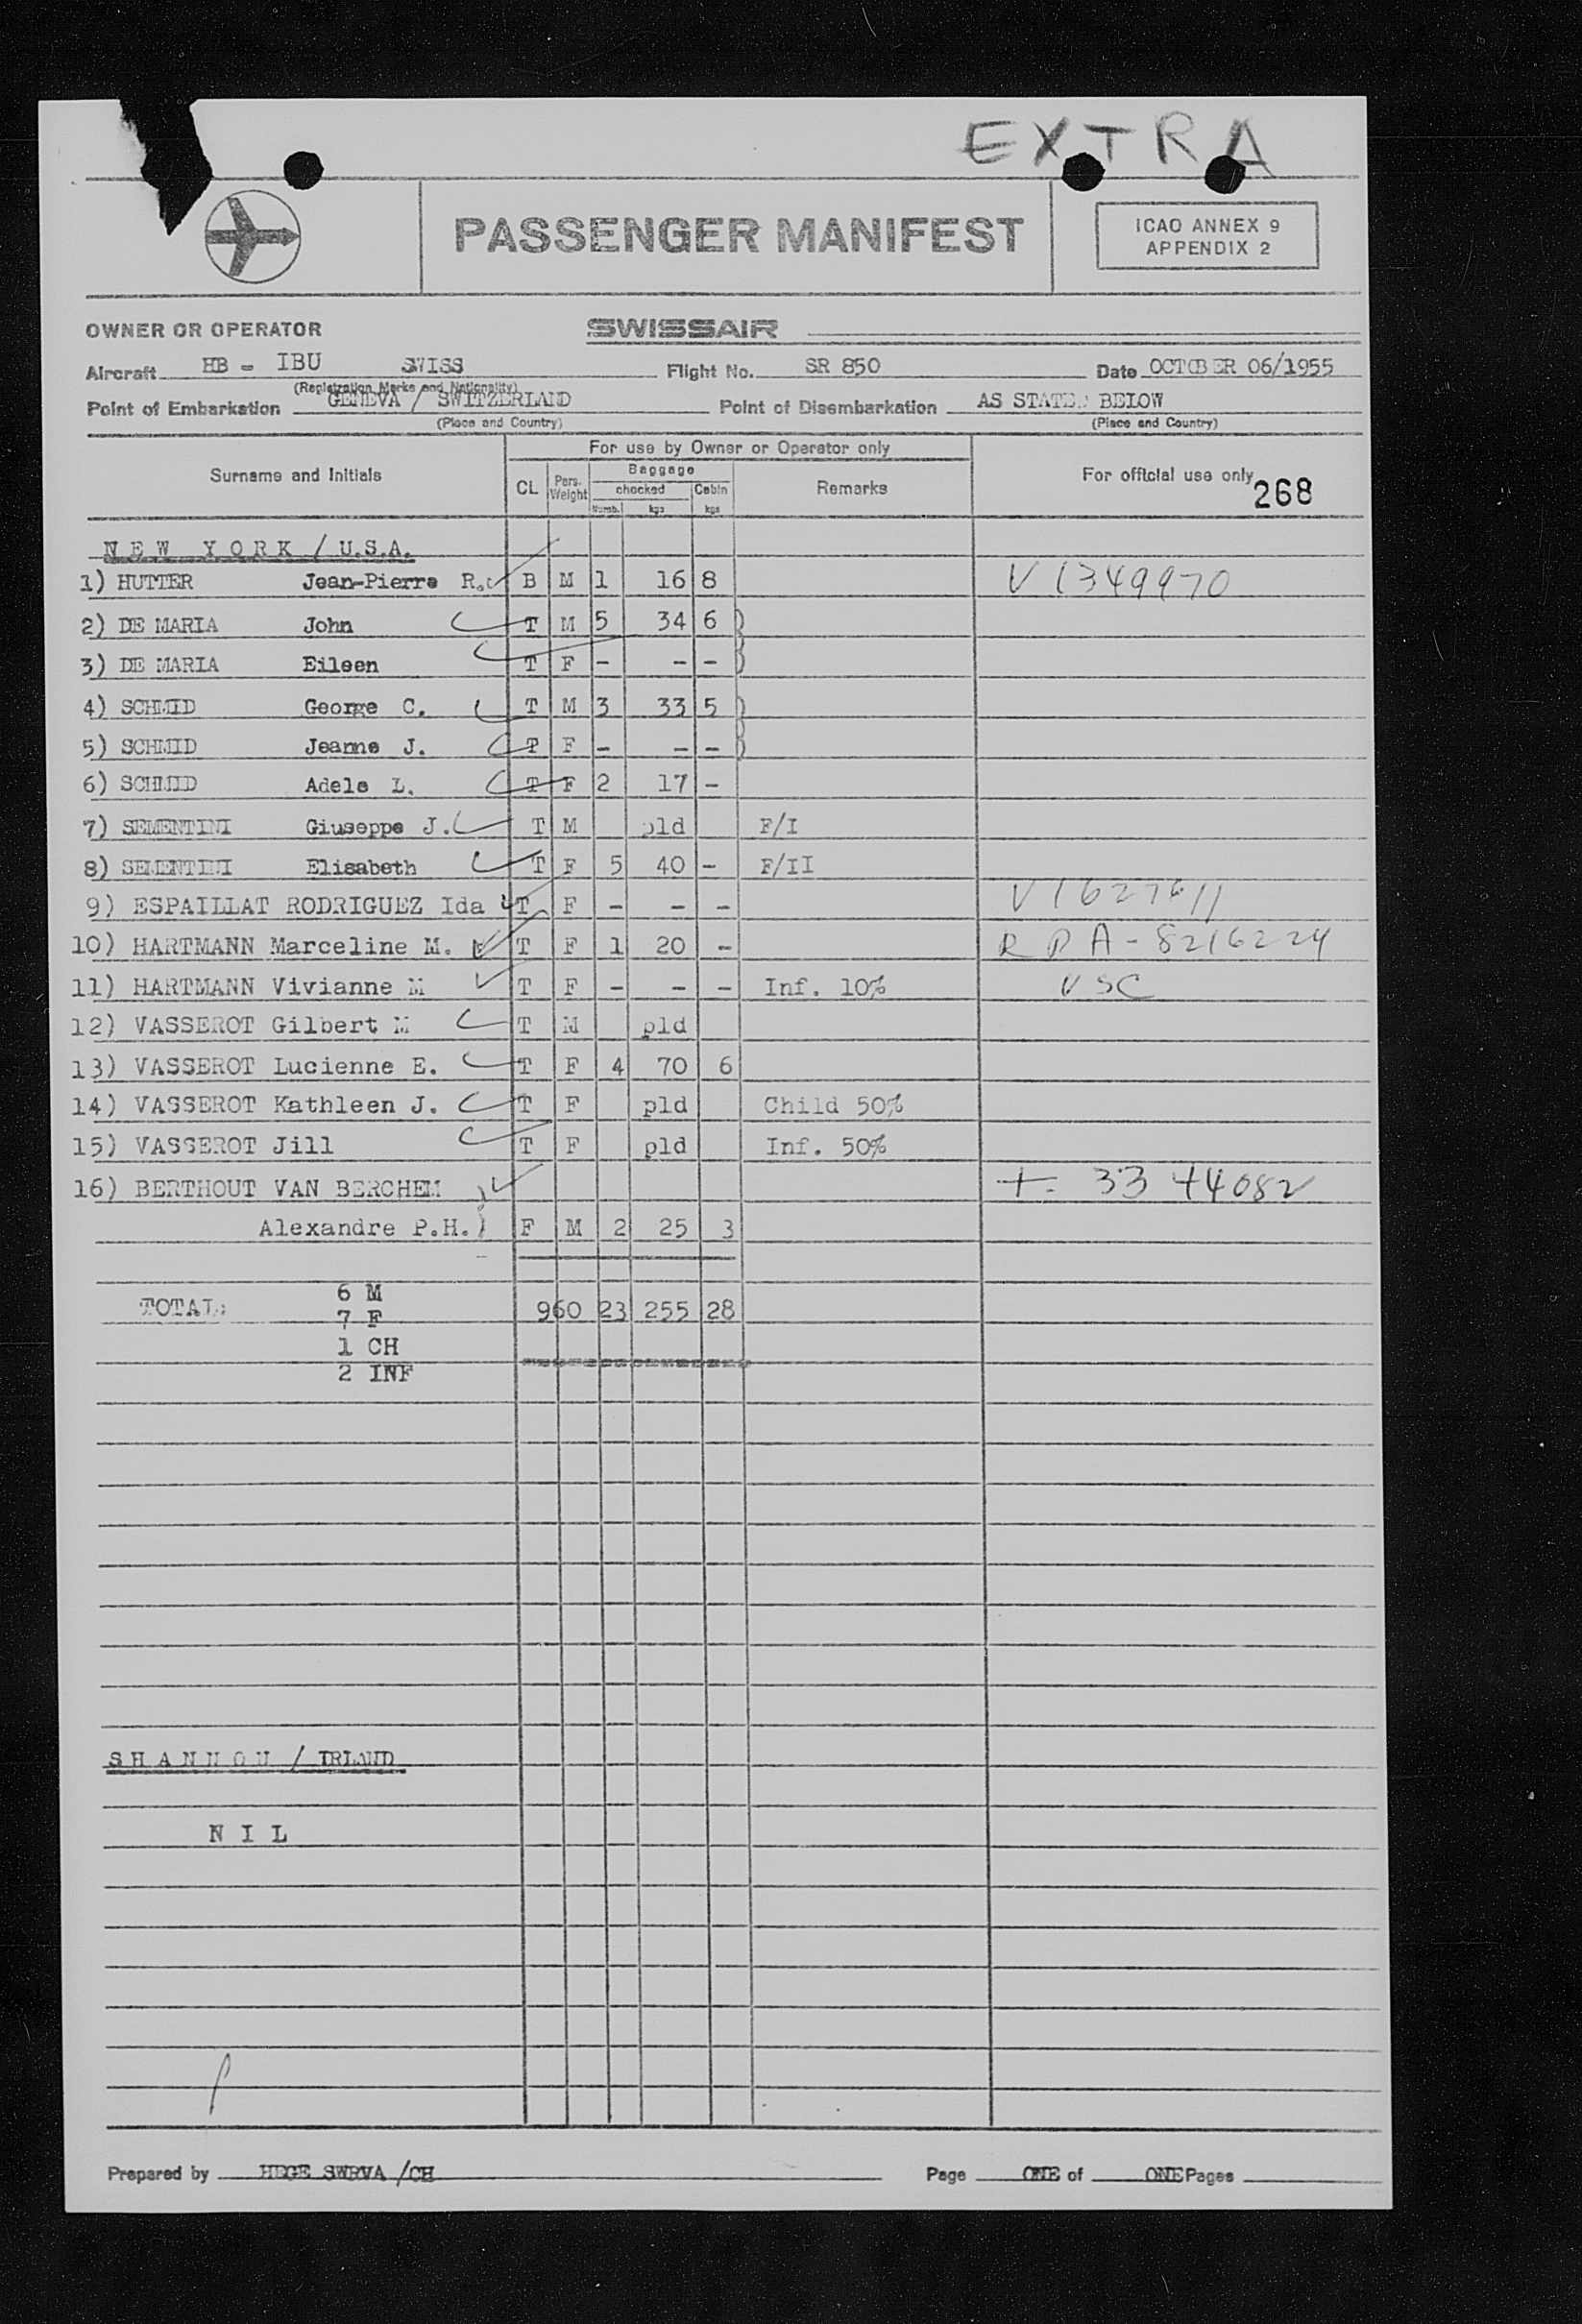 EXTRA
PASSENGER MANIFEST
ICAO ANNEX 9
APPENDIX 2
OWNER OR OPERATOR SWISSAIR
Aircraft HB - IBU SWISS Flight No. SR 850 Date OCTOBER 06/1955
(Registration Marks and Nationality)
Point of Embarkation GENEVA / SWITZERLAND Point of Disembarkation AS STATED BELOW
(Place and Country) (Place and Country)
For use by Owner or Operator only
Surname and Initials CL Pers. Weight Baggage checked Cabin Remarks For official use only 268
Numb. kgs kgs
NEW YORK / U.S.A.
1) HUTTER Jean-Pierre R. B M 1 16 8 V1349970
2) DE MARIA John T M 5 34 6 )
3) DE MARIA Eileen T F - - - )
4) SCHMID George C. T M 3 33 5 )
5) SCHMID Jeanne J. T F - - - )
6) SCHMID Adele L. T F 2 17 -
7) SEMENTINI Giuseppe J. T M pld F/I
8) SEMENTINI Elisabeth T F 5 40 - F/II
9) ESPAILLAT RODRIGUEZ Ida T F - - -
10) HARTMANN Marceline M. T F 1 20 - 8216224
11) HARTMANN Vivianne M T F - - - Inf. 10% USC
12) VASSEROT Gilbert M T M pld
13) VASSEROT Lucienne E. T F 4 70 6
14) VASSEROT Kathleen J. T F pld Child 50%
15) VASSEROT Jill T F pld Inf. 50%
16) BERTHOUT VAN BERCHEM )
Alexandre P.H.) F M 2 25 3
TOTAL: 6 M 960 23 255 28
7 F
1 CH
2 INF
SHANNON / IRLAND
NIL
Prepared by HEGE SWRVA /CH Page ONE of ONE Pages